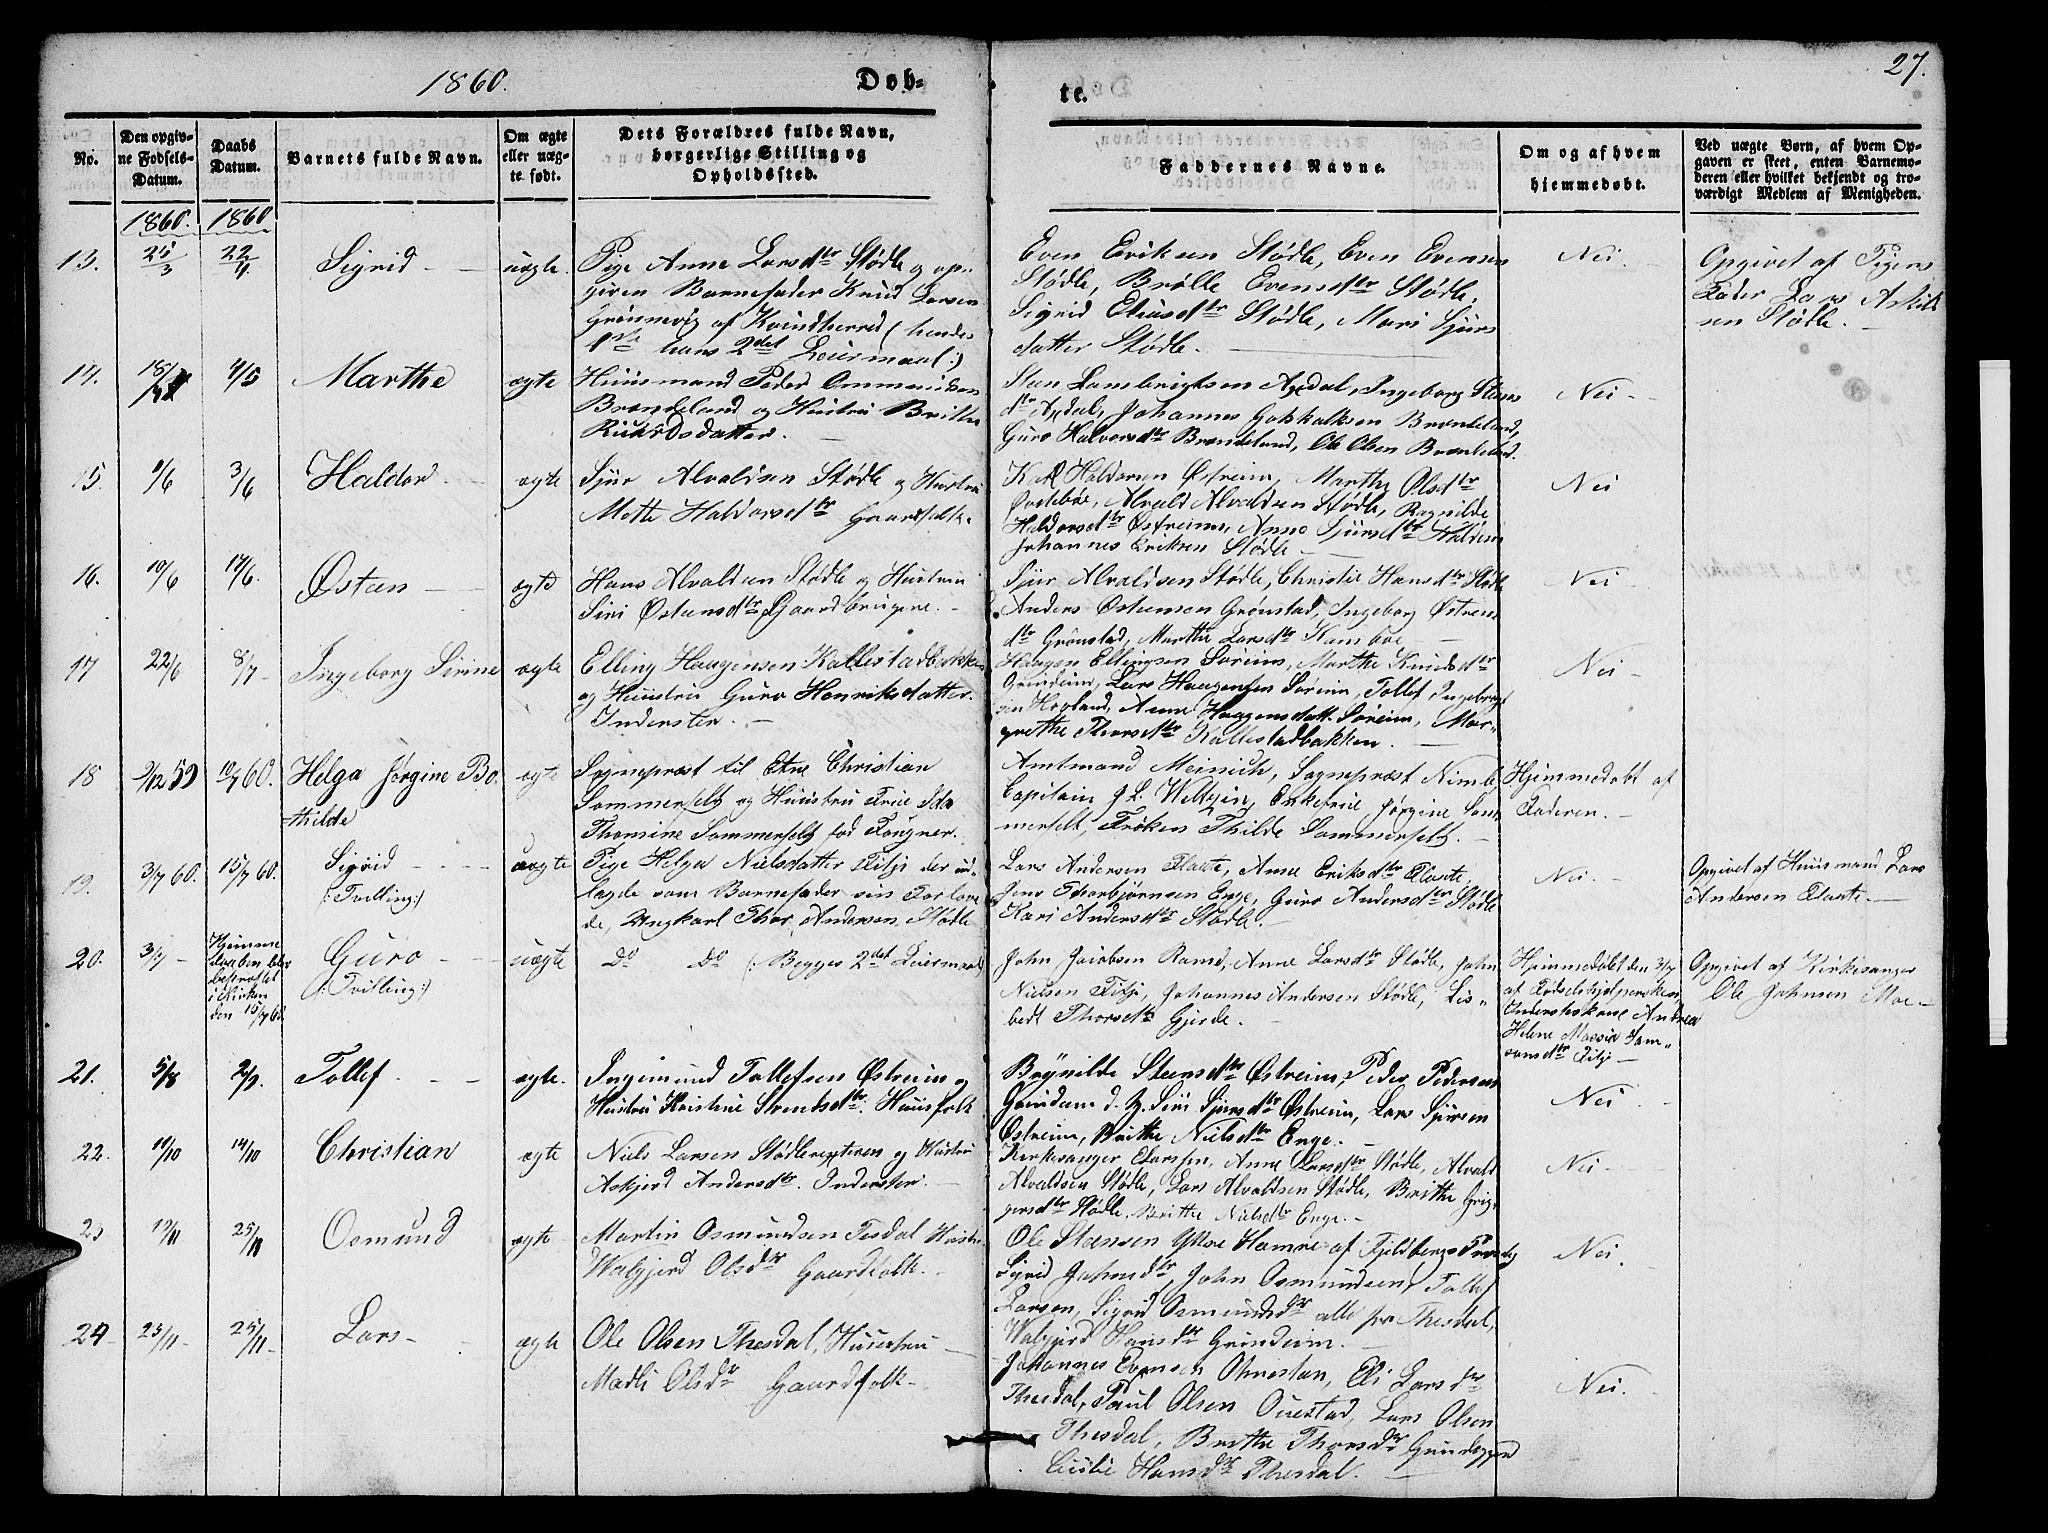 1860.
Dob-
te.
27.
No.
Den opgiv-
ne Fødsels-
Datum.
Daabs
Datum.
Barnets fulde Navn.
Om ægte
eller uæg-
te født.
Dets Forældres fulde Navn,
borgerlige Stilling og
Opholdssted.
Faddernes Navne.
Om og af hvem
hjemmedøbt.
Ved uægte Børn, af hvem Op-
gaven er skeet, enten Barnemo-
deren eller hvilket bekjendt og tro-
værdigt Medlem af Menigheden.
1860. 1860
13. 25/3 22/4 Sigrid uægte.
Pige Anne Larsdtr Stødle og opgi-
given Barnefader Knud Larsen
Grønnevig af Kvindherred (hendes
1ste hans 2det Leiermaal:)
Even Eriksen Stødle, Even Evensen
Stødle, Brølle Evensdtr Stødle,
Sigrid Eliasdtr Stødle, Mari Sjurs
datter Stødle.
Nei.
Opgivet af Pigens
Fader Lars Aslak
sen Stødle.
14. 18/4 4/5 Marthe ægte
Huusmand Peder Ommundsen
Brændeland og Hustru Brithe
Rikoldsdatter.
Sten Lambrigtsen Axdal, Ingeborg Stens
dtr Axdal, Johannes Gotskalksen Brændeland,
Guro Halvorsdtr Brændeland, Ole Olsen Brændeland.
Nei
15. 9/6 3/6 Haldor ægte
Sjur Alvaldsen Stødle og Hustru
Mette Haldorsdtr Gaardfolk.
Haldorsen Østreim, Marthe Olsdtr
Østebøe, Alvald Alvaldsen Stødle, Ragnilde
Haldorsdtr Østreim, Anne Sjursdtr
Johannes Eriksen Stødle
Nei
16. 10/6 17/6. Østen ægte
Hans Alvaldsen Stødle og Hustru
Siri Østensdtr Gaardbrugere.
Sjur Alvaldsen Stødle, Christie Hansdtr Stødle
Anders Østensen Grønstad, Ingeborg Østens
dtr Grønstad, Marthe Larsdtr Kambøe
Nei
17 22/6 8/7 Ingeborg Sirine ægte
Elling Haagensen Kallestadbakken
og Huustru Guro Henriksdatter.
Inderster.
Haagen Ellingsen Søreim, Marthe Knudsdtr
Grindeim, Lars Haagensen Søreim, Tollef Ingebrigt
sen Hogland, Anne Haagensdatt. Søreim, Mar-
grethe Thorsdtr Kallestadbakken.
Nei
18 9/12 59 10/7 60. Helga Jørgine Bo.
thilde ægte
Sogneprest til Etne Christian
Sommerfelt og Huustru Frue Ida
Thomine Sommerfelt fød Fougner.
Amtmand Meinich, Sogneprest Nimb
Capitain J. L. Weltzin, Enkefrue Jørgine Som
merfelt, Frøken Thilde Sommerfelt.
Hjemmedøbt af
Faderen.
19. 3/7 60. 15/7 60. Sigrid
(:Tvilling:) uægte
Pige Helga Nielsdatter Fitji der ud-
lagde som Barnefader sin Forlove
de, Ungkarl Thor Andersen Stødle
Lars Andersen Flaate, Anne Eriksdtr Flaate,
Jens Thorbjørnsen Enge, Guro Andersdtr Stødle
Kari Andersdtr Stødle.
Nei.
Opgivet af Huusmand Lars
Andersen Flaate.
20. 3/7 Hjemme
daaben blev
bekræftet
i Kirken
den 15/7 60 Guro
(:Tvilling:) uægte
Do Do (:Begges 2det Leiermaal
John Jacobsen Ramd, Anne Larsdtr Stødle, John
Nielsen Fitji, Johannes Andersen Stødle, Lis-
bedt Thorsdtr Gjerde.
Hjemmedøbt den 3/7
af Fødselshjelpersken
Inderstekone Andrea
Helene Sam-
sonsdtr Fitji
Opgivet af Kirkesanger
Ole Johnsen Moe
21. 5/8 2/9. Tollef ægte.
Ingemund Tollefsen Østreim og
Hustru Kristine Huusfolk
Brynilde Steensdtr Østreim, Peder Pedersen
Grindem d. y. Siri Sjursdtr Østreim, Lars Sjursen
Østreim, Brithe Nielsdtr Enge.
Nei
22. 10/10 14/10 Christian ægte
Niels Larsen Stødle og Hustru
Askjerd Andersdtr. Inderster.
Kirkesanger Anne Larsdtr Stødle, Alvald
Alvaldsen Stødle, Lars Alvaldsen Stødle, Brithe Grig-
gersdtr Stødle. Brithe Nielsdtr Enge.
Nei
23 19/11 25/11 Osmund ægte
Martin Osmundsen Tesdal Hustru
Walgjerd Olsdr Gaardfolk.
Ole Steensen Yttre Hamre af Fjeldbergs
Sigrid Johnsdtr, John Osmundsen, Tollef
Larsen, Sigrid Osmundsdr alle fra Thesdal,
Walgjerd Hansdr Grindeim.
Nei.
24 23/11 25/11. Lars ægte
Ole Olsen Thesdal, Huustru
Madli Olsdr Gaardfolk
Johannes Evensen Eli Larsdr
Thesdal, Paul Olsen Lars Olsen
Thesdal, Brithe Thorsdr
Cicilie Hansdr Thesdal.
Nei.